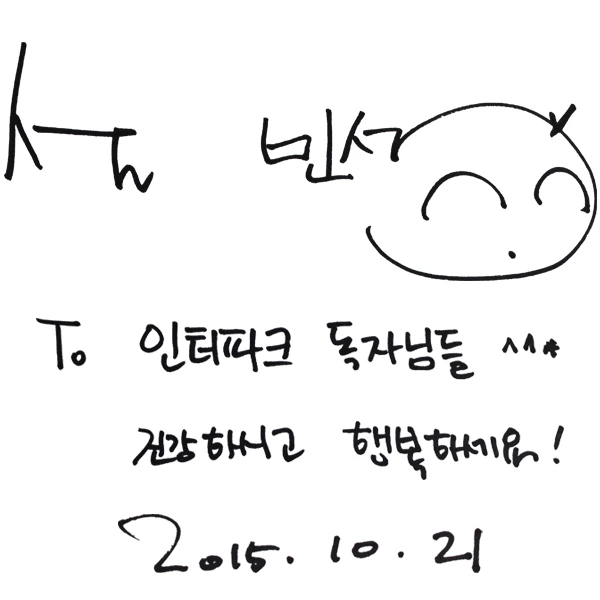 서 민서
To 인터파크 독자님들 ^^*
건강하시고 행복하세요!
2015. 10. 21